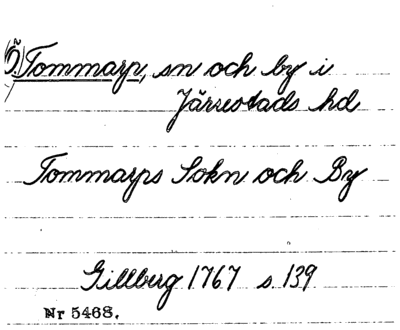 (Ö.) Tommarp, sn och by i
Järrestads hd
Tommarps Sokn och By
Gillberg 1767 s 139
Nr 5468.